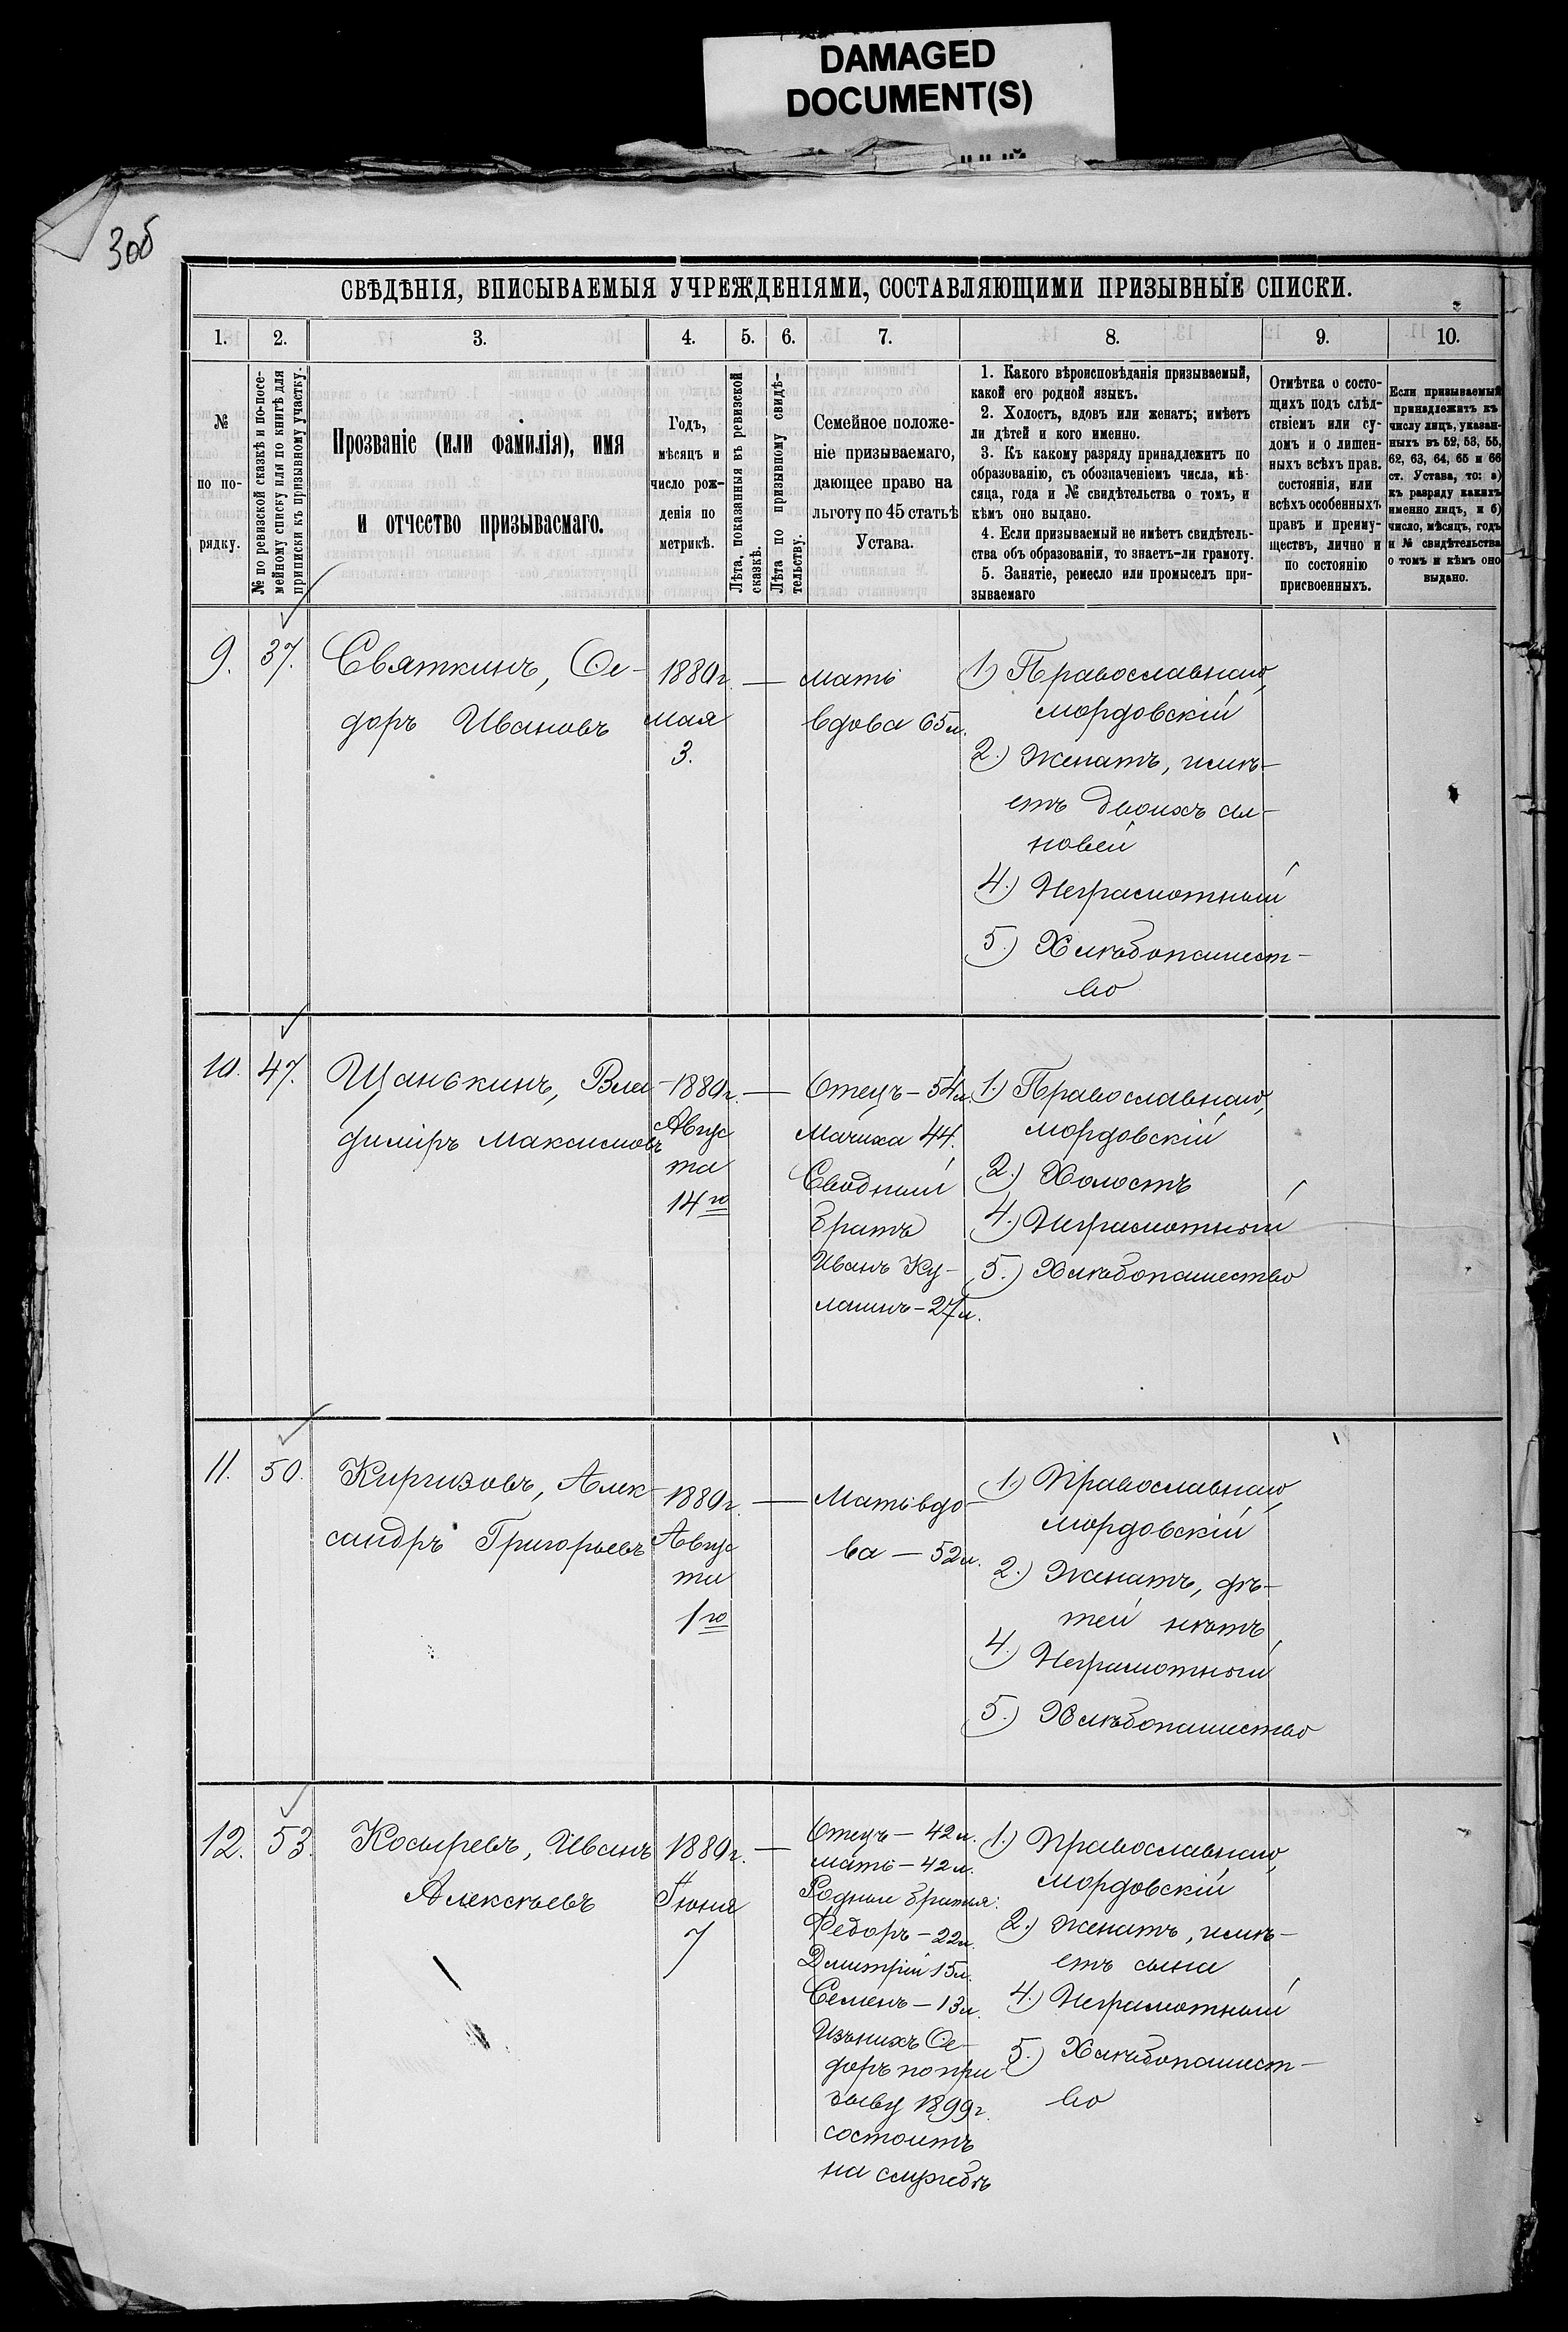 DAMAGED
DOCUMENT(S)
306
СВѢДѢНІЯ, ВПИСЫВАЕМЫЯ УЧРЕЖДЕНІЯМИ, СОСТАВЛЯЮЩИМИ ПРИЗЫВНЫЕ СПИСКИ.
1.
2.
3.
4.
5.
6.
7.
8.
9.
10.
№
по по-
рядку.
№ по ревизской сказкѣ и по-посе-
мейному списку или по книгѣ для
приписки къ призывному участку.
Прозваніе (или фамилія), имя
и отчество призываемаго.
Годъ,
мѣсяцъ и
число рож-
денія по
метрикѣ.
Лѣта, показанныя въ ревизской
сказкѣ.
Лѣта по призывному свидѣ-
тельству.
Семейное положе-
ніе призываемаго,
дающее право на
льготу по 45 статьѣ
Устава.
1. Какого вѣроисповѣданія призываемый,
какой его родной языкъ.
2. Холостъ, вдовъ или женатъ; имѣетъ
ли дѣтей и кого именно.
3. Къ какому разряду принадлежитъ по
образованію, съ обозначеніемъ числа, мѣ-
сяца, года и № свидѣтельства о томъ, и
кѣмъ оно выдано.
4. Если призываемый не имѣетъ свидѣтель-
ства объ образованіи, то знаетъ-ли грамоту.
5. Занятіе, ремесло или промыселъ при-
зываемаго
Отмѣтка о состо-
щихъ подъ слѣд-
ствіемъ или су-
домъ и о лишен-
ныхъ всѣхъ прав.
состоянія, или
всѣхъ особенныхъ
правъ и преиму-
ществъ, лично и
по состоянію
присвоенныхъ.
Если призываемый
принадлежитъ къ
числу лицъ, указан-
ныхъ въ 52, 53, 55,
62, 63, 64, 65 и 66
ст. Устава, то: а)
къ разряду какихъ
именно лицъ, и б)
число, мѣсяцъ, годъ
и № свидѣтельства
о томъ и кѣмъ оно
выдано.
9.
37.
Святкинъ, Ѳе-
доръ Ивановъ
1880г.
мая
3.
—
мать
вдова 65л.
1) Православнаго,
мордовскій
2.) Женатъ, имѣ-
етъ двоихъ сы-
новей
4.) Неграмотный
5.) Хлѣбопашест-
во
10.
47.
Щанькинъ, Вла-
диміръ Максимовъ
1880г.
Авгус
та
14го
—
Отецъ — 54л.
Мачиха 44.
Сводный
братъ
Иванъ Ку-
лашнъ — 27л.
1.) Православнаго,
мордовскій
2.) Холостъ
4.) Неграмотный
5.) Хлѣбопашество
11.
50.
Киргизовъ, Алек-
сандръ Григорьевъ
1880г.
Авгус
та
1го
—
Мать вдо-
ва — 52л.
1.) Православнаго,
мордовскій
2.) Женатъ, дѣ-
тей нѣтъ
4.) Неграмотный
5.) Хлѣбопашество
12.
53.
Косыревъ, Иванъ
Алексѣевъ
1880г.
Іюня
7
—
Отецъ — 42л.
мать — 42л.
Родные братья:
Ѳедоръ — 22л.
Дмитрій 15л.
Семенъ — 13л.
Изъ нихъ Ѳе-
доръ по при
зыву 1899г.
состоитъ
на службѣ
1.) Православнаго,
мордовскій
2.) Женатъ, имѣ-
етъ сына
4.) Неграмотный
5.) Хлѣбопашест-
во